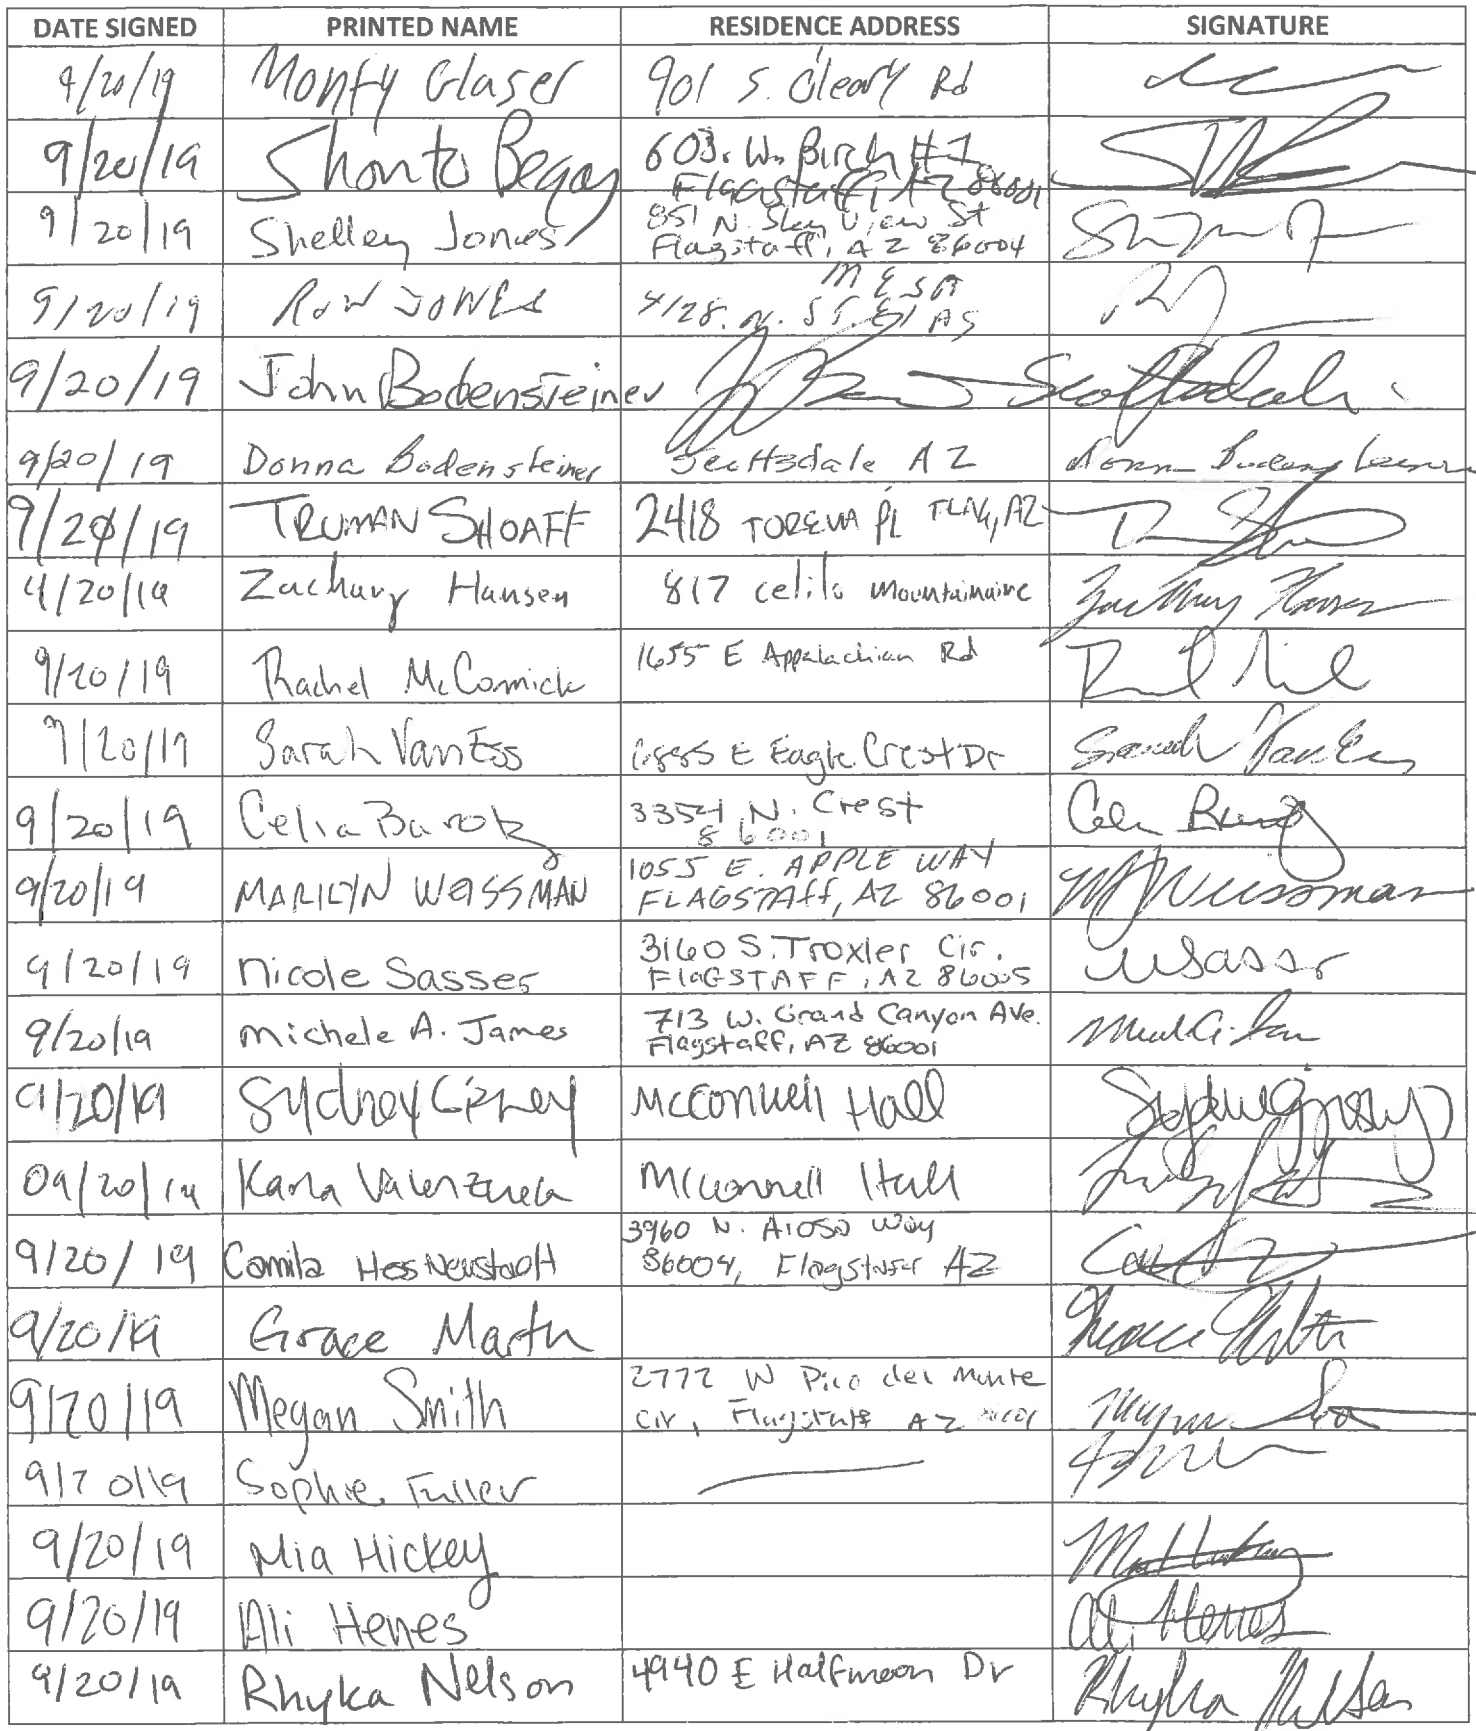 DATE SIGNED PRINTED NAME RESIDENCE ADDRESS SIGNATURE
9/20/19 Monty Glaser 901 S. Cleary Rd
9/20/19 Shonto Begay 603. W. Birch #1
Flagstaff, AZ 86001
9/20/19 Shelley Jones 851 N. Sky View St
Flagstaff, AZ 86004
9/20/19 RON JONES MESA
4128. N.
9/20/19 John Bodensteiner Scottsdale
9/20/19 Donna Bodensteiner Scottsdale AZ Donna Bodensteiner
9/20/19 TRUMAN SHOAFF 2418 TOREVA PL FLAG, AZ
9/20/19 Zachary Hansen 817 celilo Mountainaire Zachary Hansen
9/20/19 Rachel McCormick 1655 E Appalachian Rd
9/20/19 Sarah VanEss 6885 E Eagle Crest Dr Sarah VanEss
9/20/19 Celia Barotz 3354 N. Crest
86001
9/20/19 MARILYN WEISSMAN 1055 E. APPLE WAY
FLAGSTAFF, AZ 86001 M Weissman
9/20/19 Nicole Sasser 3160 S. Troxler Cir.
FLAGSTAFF, AZ 86005 NSasser
9/20/19 Michele A. James 713 W. Grand Canyon Ave.
Flagstaff, AZ 86001
9/20/19 Sydney Gipney McConnell Hall
09/20/19 Karla Valenzuela McConnell Hall
9/20/19 Camila Hes Neustadt 3960 N. Way
86004, Flagstaff AZ
9/20/19 Grace Martin
9/20/19 Megan Smith 2772 W Pico del Monte
Cir, Flagstaff AZ
9/20/19 Sophie Fuller
9/20/19 Mia Hickey
9/20/19 Ali Henes Ali Henes
9/20/19 Rhyka Nelson 4940 E Halfmoon Dr Rhyka Nelson